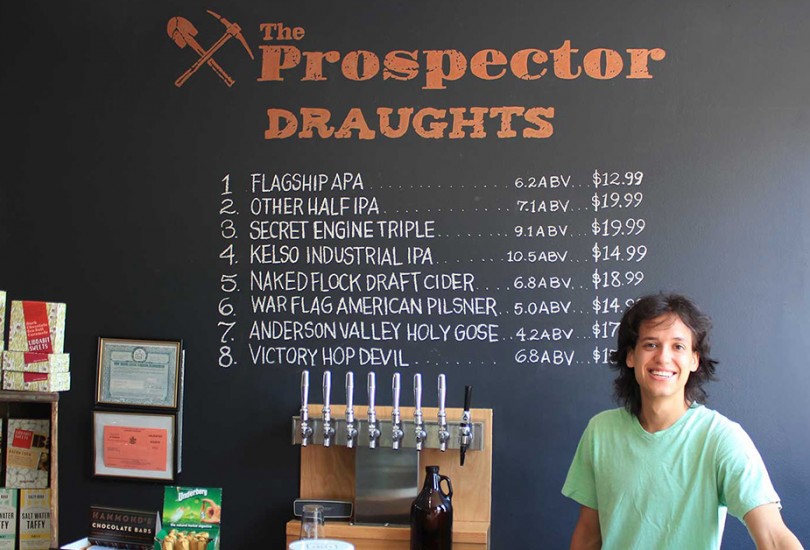 The
Prospector
DRAUGHTS
1 FLAGSHIP APA 6.2 ABV $12.99
2. OTHER HALF IPA 7.1 ABV $19.99
3. SECRET ENGINE TRIPLE 9.1 ABV $19.99
4. KELSO INDUSTRIAL IPA 10.5 ABV $14.99
5. NAKED FLOCK DRAFT CIDER 6.8 ABV $18.99
6. WAR FLAG AMERICAN PILSNER 5.0 ABV
7. ANDERSON VALLEY HOLY GOSE 4.2 ABV
8. VICTORY HOP DEVIL 6.8 ABV
SALT WATER
TAFFY
SALT WATER
TAFFY
HAMMOND'S
CHOCOLATE BARS